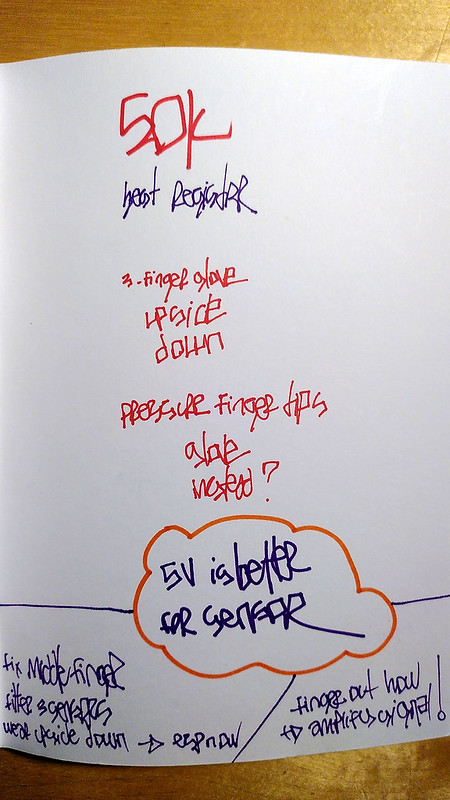 50k
best Resistor
3-finger glove
upside
down
pressure finger tips
glove
instead?
5V is better
for sensor
fix Middle finger
filter 3 sensors
wear upside down → esp now
finger out how
to amplify signal!